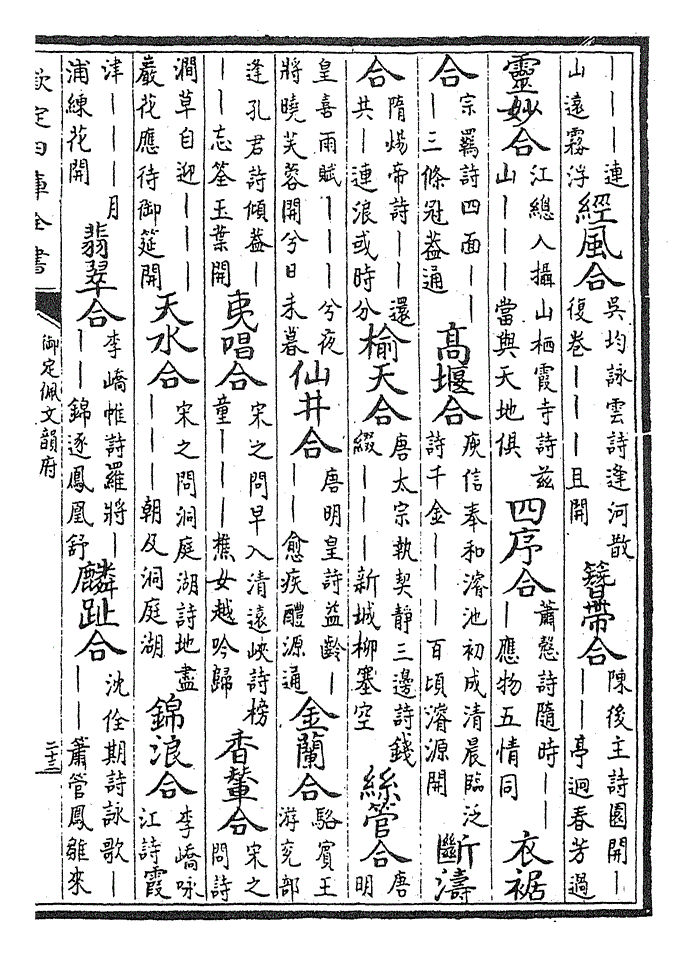 ｜｜｜連山遠霧浮 經風合 吳均詠雲詩逢河散復卷｜｜｜且開 簪帶合 陳後主詩園開｜｜｜亭迥春芳過
靈妙合 江總入攝山栖霞寺詩兹山｜｜｜當與天地俱 四序合 蕭慤詩隨時｜｜｜應物五情同 衣裾
合 宗羈詩四面｜｜｜三條冠蓋通 高堰合 庾信奉和濬池初成清晨臨泛詩千金｜｜｜百頃濬源開 斷濤
合 隋煬帝詩｜｜還共｜連浪或時分 榆天合 唐太宗執契靜三邊詩錢綴｜｜｜新城柳塞空 絲管合 唐明
皇喜雨賦｜｜｜兮夜將曉芙蓉開兮日未暮 仙井合 唐明皇詩益齡｜｜｜愈疾醴源通 金蘭合 駱賓王游兖部
逢孔君詩傾蓋｜｜｜忘筌玉葉開 夷唱合 宋之問早入清遠峽詩榜童｜｜｜樵女越吟歸 香輦合 宋之問詩
澗草自迎｜｜｜巖花應待御筵開 天水合 宋之問洞庭湖詩地盡｜｜｜朝及洞庭湖 錦浪合 李嶠咏江詩霞
津｜｜｜月浦練花開 翡翠合 李嶠帷詩羅將｜｜｜錦逐鳳凰舒 麟趾合 沈佺期詩詠歌｜｜｜簫管鳳雛來
欽定四庫全書
御定佩文韻府
二十三